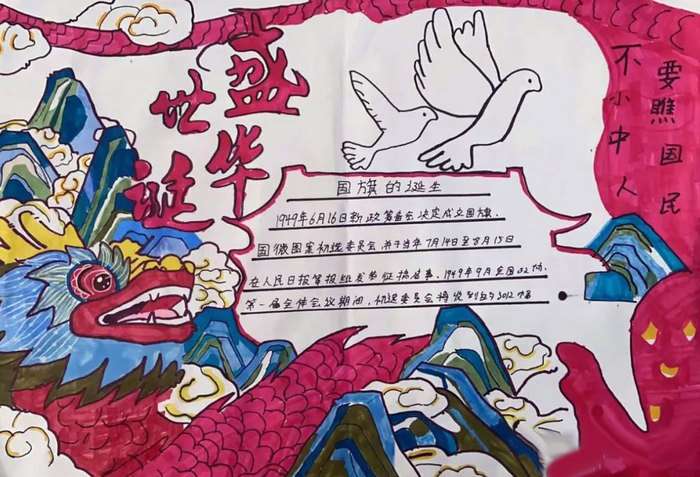 盛世华诞
要瞧国民
不小中人
国旗的诞生
1949年6月16日新政筹备会决定成立国旗.
国徽图案初选委员会,并于当年7月14日至8月15日
在人民日报等报纸发 征稿启事.1949年9月
第一届全体会议期间,初选委员会将收到 3012幅